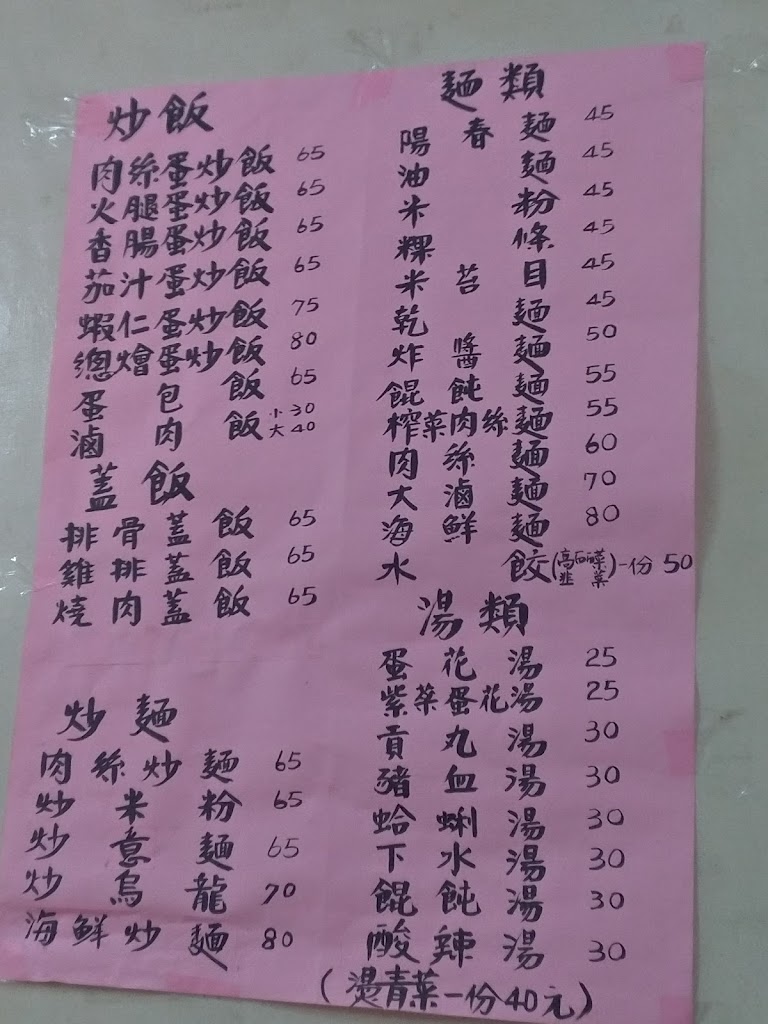 炒飯
肉絲蛋炒飯 65
火腿蛋炒飯 65
香腸蛋炒飯 65
茄汁蛋炒飯 65
蝦仁蛋炒飯 75
總燴蛋炒飯 80
蛋包飯 65
滷肉飯 小30 大40
蓋飯
排骨蓋飯 65
雞排蓋飯 65
燒肉蓋飯 65
炒麵
肉絲炒麵 65
炒米粉 65
炒意麵 65
炒烏龍 70
海鮮炒麵 80
麵類
陽春麵 45
油麵 45
米粉 45
粿條 45
米苔目 45
乾麵 45
炸醬麵 50
餛飩麵 55
榨菜肉絲麵 55
肉絲麵 60
大滷麵 70
海鮮麵 80
水餃(高麗菜 韭菜)一份 50
湯類
蛋花湯 25
紫菜蛋花湯 25
貢丸湯 30
豬血湯 30
蛤蜊湯 30
下水湯 30
餛飩湯 30
酸辣湯 30
(燙青菜一份40元)